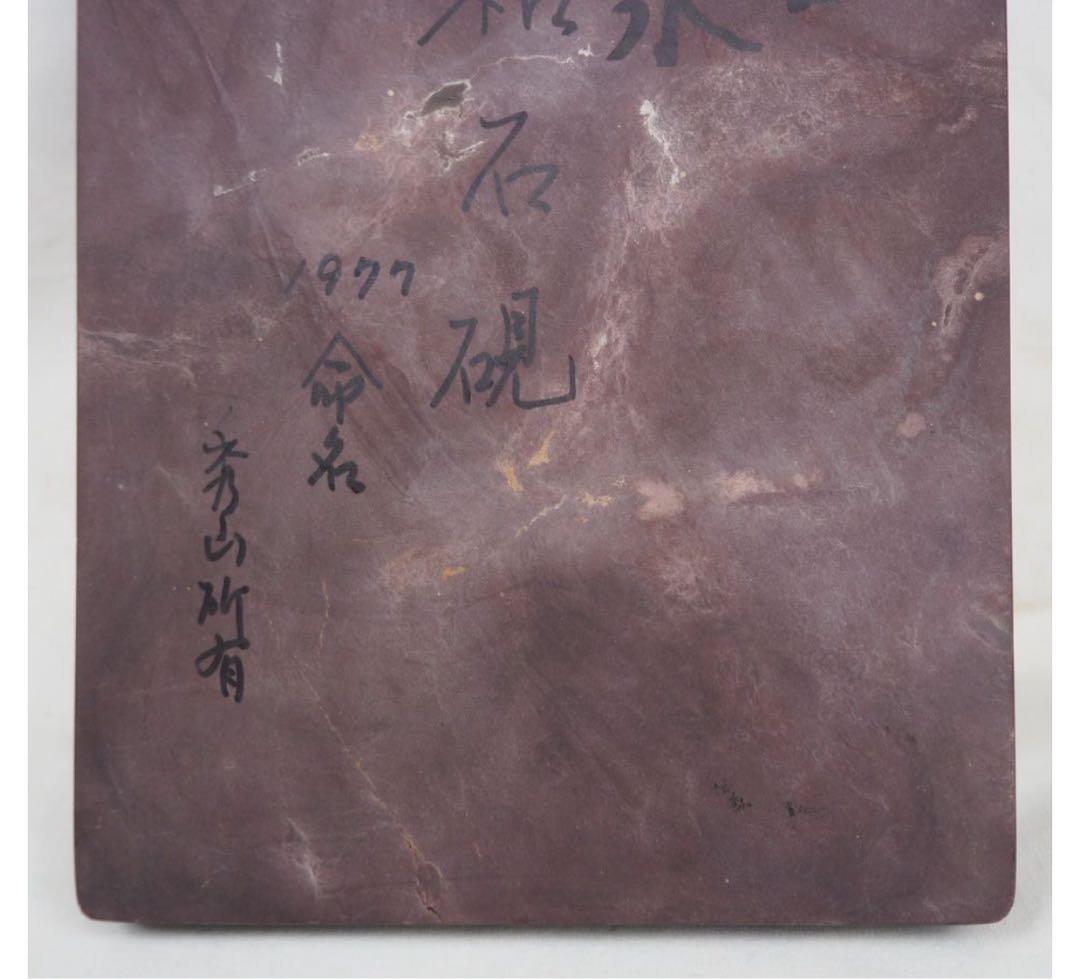 石硯
1977
命名
秀山所有